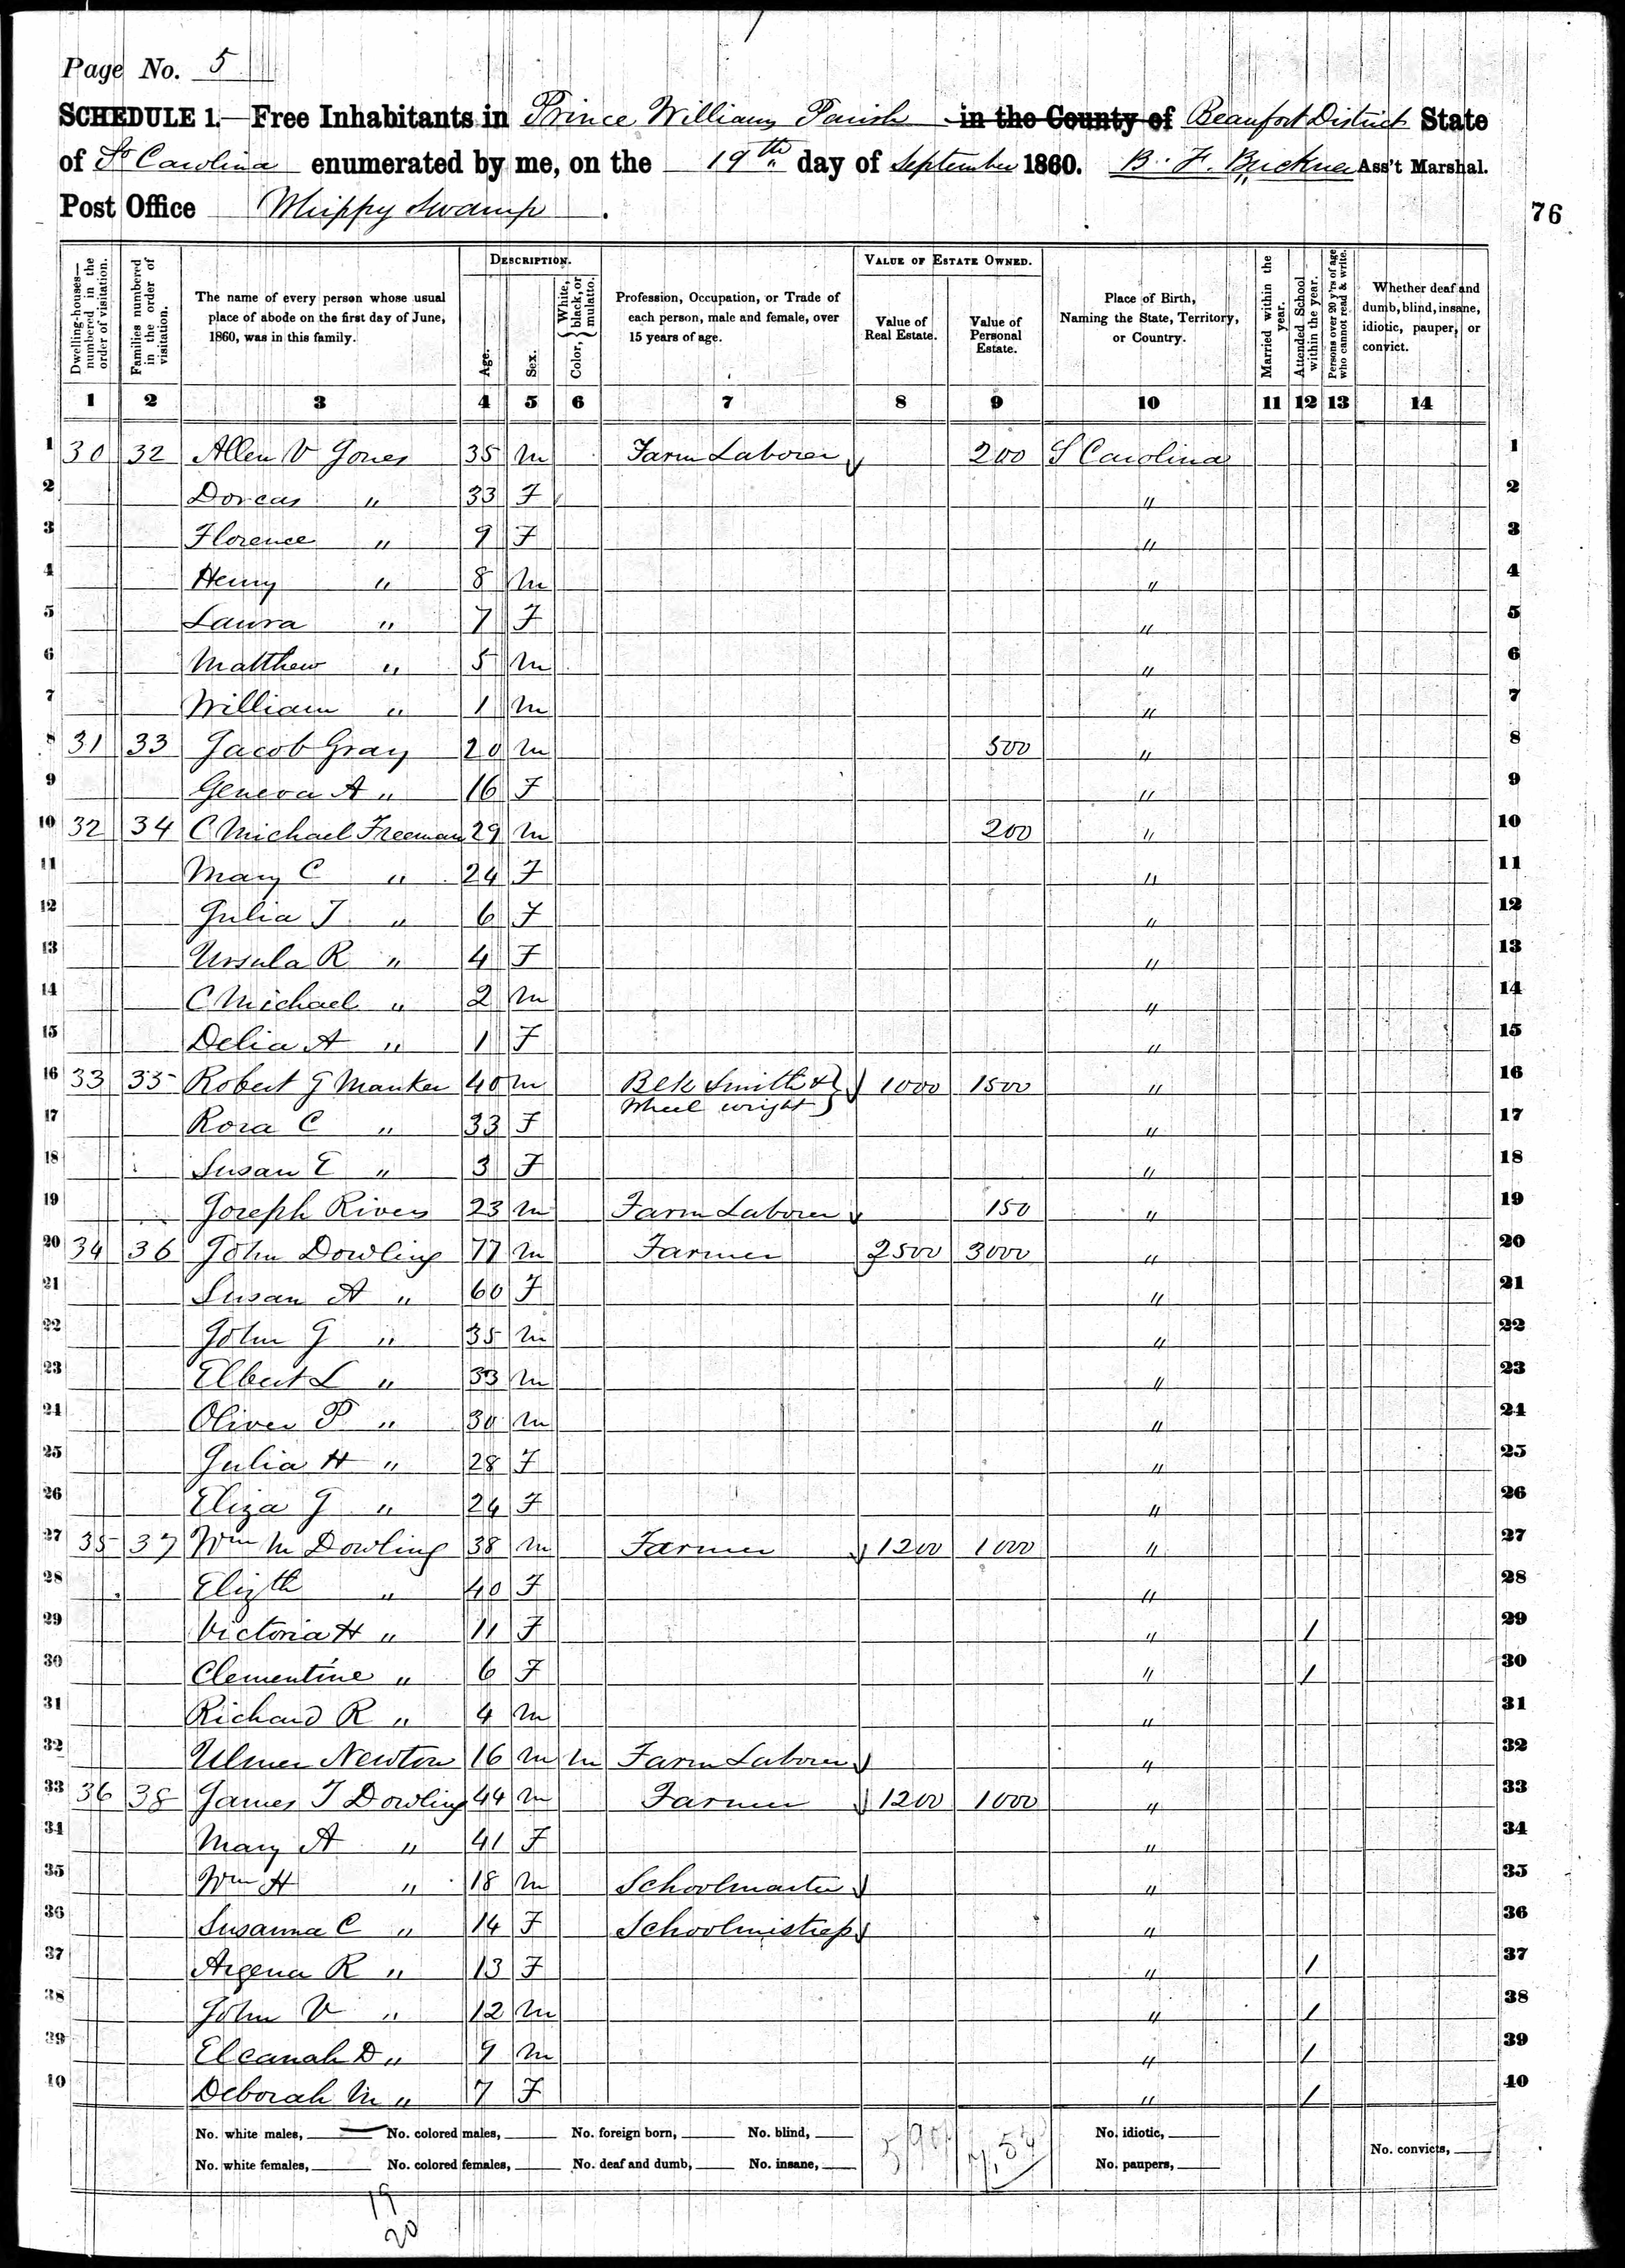 Page No. 5
SCHEDULE 1.—Free Inhabitants in Prince Williams Parish in the County of Beaufort District State
of So Carolina enumerated by me, on the 19th day of September 1860. B. F. Buckner Ass't Marshal.
Post Office Whippy Swamp.
76
DESCRIPTION. VALUE OF ESTATE OWNED.
Dwelling-houses—numbered in the order of visitation.
Families numbered in the order of visitation.
The name of every person whose usual place of abode on the first day of June, 1860, was in this family.
Age.
Sex.
Color, White, black, or mulatto.
Profession, Occupation, or Trade of each person, male and female, over 15 years of age.
Value of Real Estate.
Value of Personal Estate.
Place of Birth, Naming the State, Territory, or Country.
Married within the year.
Attended School within the year.
Persons over 20 y'rs of age who cannot read & write.
Whether deaf and dumb, blind, insane, idiotic, pauper, or convict.
1 2 3 4 5 6 7 8 9 10 11 12 13 14
1 30 32 Allen V Jones 35 m Farm Laborer 200 S Carolina 1
2 Dorcas " 33 F " 2
3 Florence " 9 F " 3
4 Henry " 8 m " 4
5 Laura " 7 F " 5
6 Matthew " 5 m " 6
7 William " 1 m " 7
8 31 33 Jacob Gray 20 m 500 " 8
9 Geneva A " 16 F " 9
10 32 34 C Michael Freeman 29 m 200 " 10
11 Mary C " 24 F " 11
12 Julia J " 6 F " 12
13 Ursula R " 4 F " 13
14 C Michael " 2 m " 14
15 Delia A " 1 F " 15
16 33 35 Robert G Manker 40 m Blk Smith & 1000 1500 " 16
Wheel wright
17 Rora C " 33 F " 17
18 Susan E " 3 F " 18
19 Joseph Rivers 23 m Farm Laborer 150 " 19
20 34 36 John Dowling 77 m Farmer 2500 3000 " 20
21 Susan A " 60 F " 21
22 John G " 35 m " 22
23 Elbert L " 33 m " 23
24 Oliver P " 30 m " 24
25 Julia H " 28 F " 25
26 Eliza G " 24 F " 26
27 35 37 Wm M Dowling 38 m Farmer 1200 1000 " 27
28 Elizth " 40 F " 28
29 Victoria H " 11 F " / 29
30 Clementine " 6 F " / 30
31 Richard R " 4 m " 31
32 Ulmer Newton 16 m m Farm Laborer " 32
33 36 38 James T Dowling 44 m Farmer 1200 1000 " 33
34 Mary A " 41 F " 34
35 Wm H " 18 m Schoolmaster " 35
36 Susanna C " 14 F Schoolmistress " 36
37 Argena R " 13 F " / 37
38 John V " 12 m " / 38
39 Elcanah D " 9 m " / 39
40 Deborah M " 7 F " / 40
No. white males, No. colored males, No. foreign born, No. blind, No. idiotic,
No. white females, No. colored females, No. deaf and dumb, No. insane, No. paupers, No. convicts,
19
20